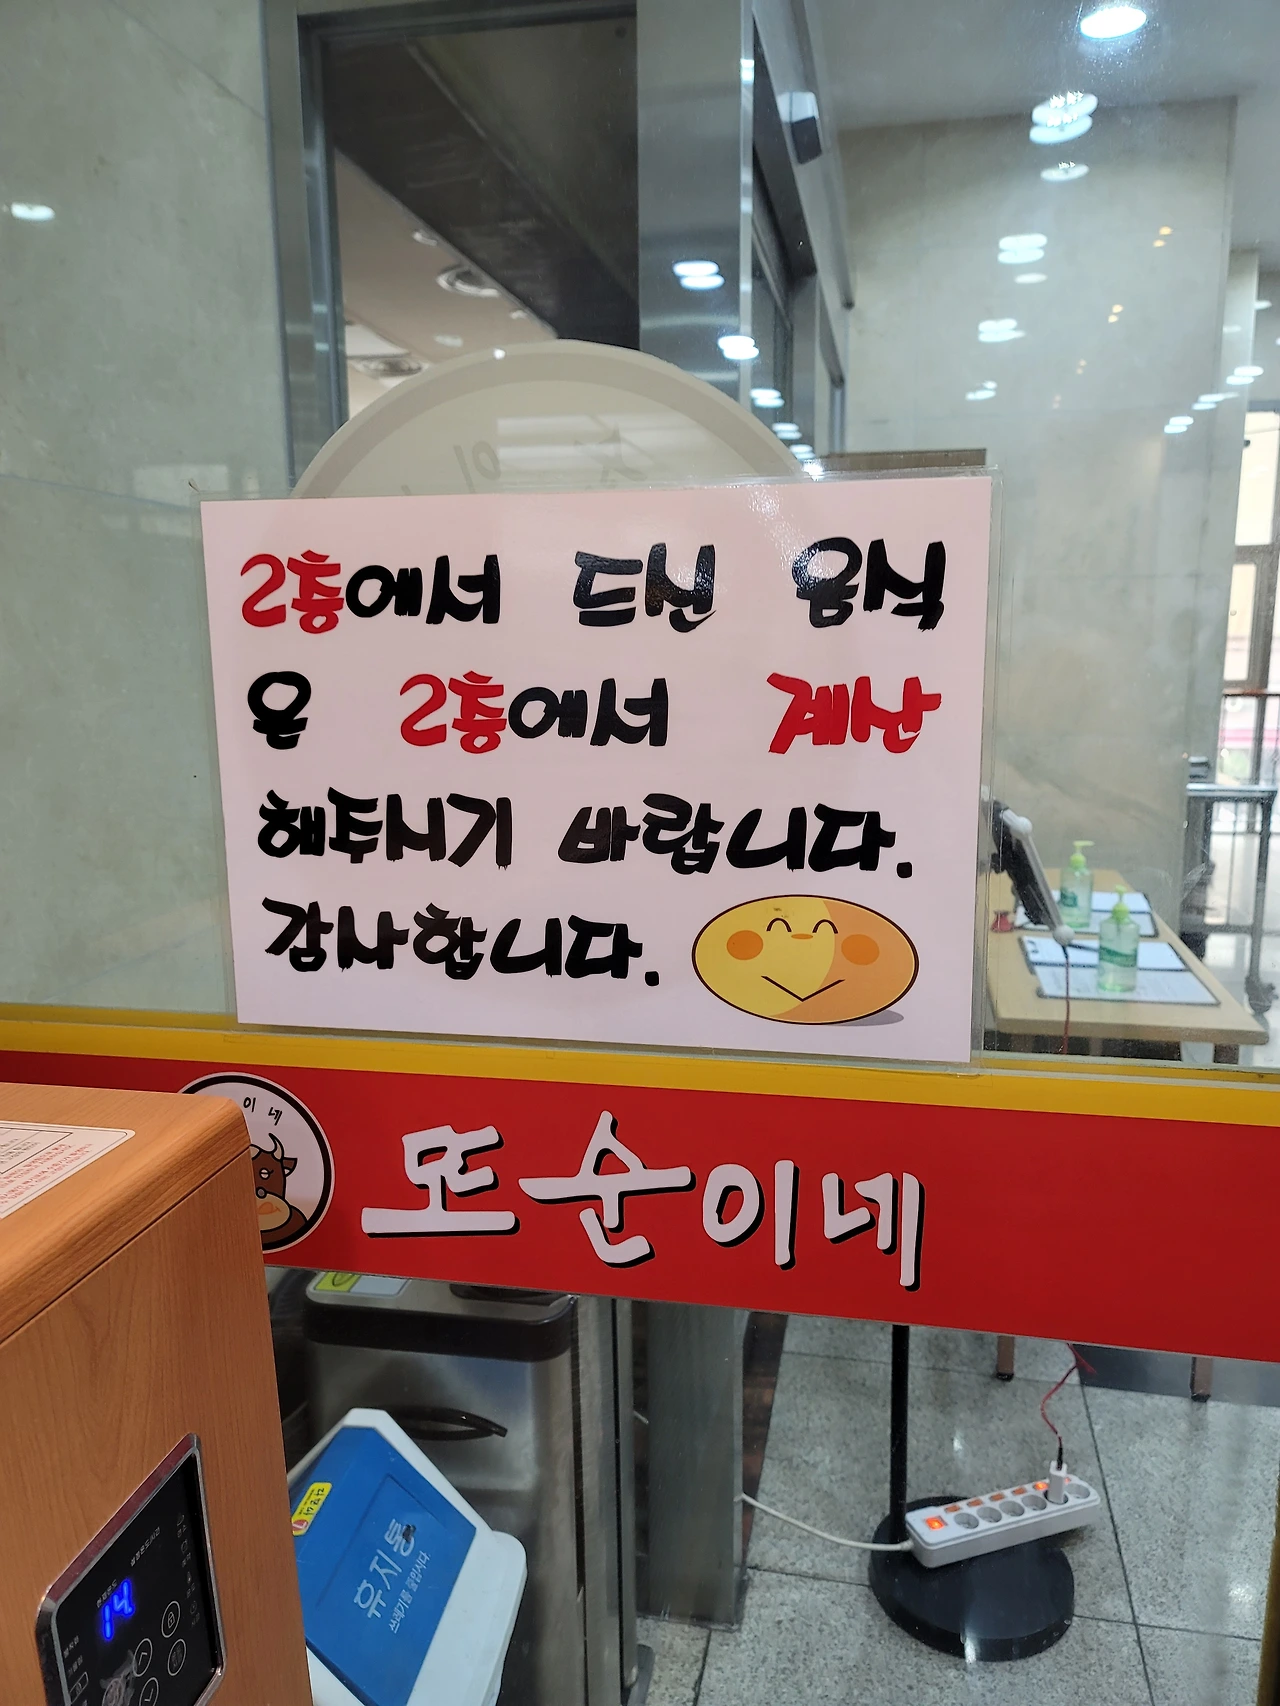 2층에서 드신 음식
은 2층에서 계산
해주시기 바랍니다.
감사합니다.
이네
또순이네
14
휴지통
쓰레기를 줄입시다